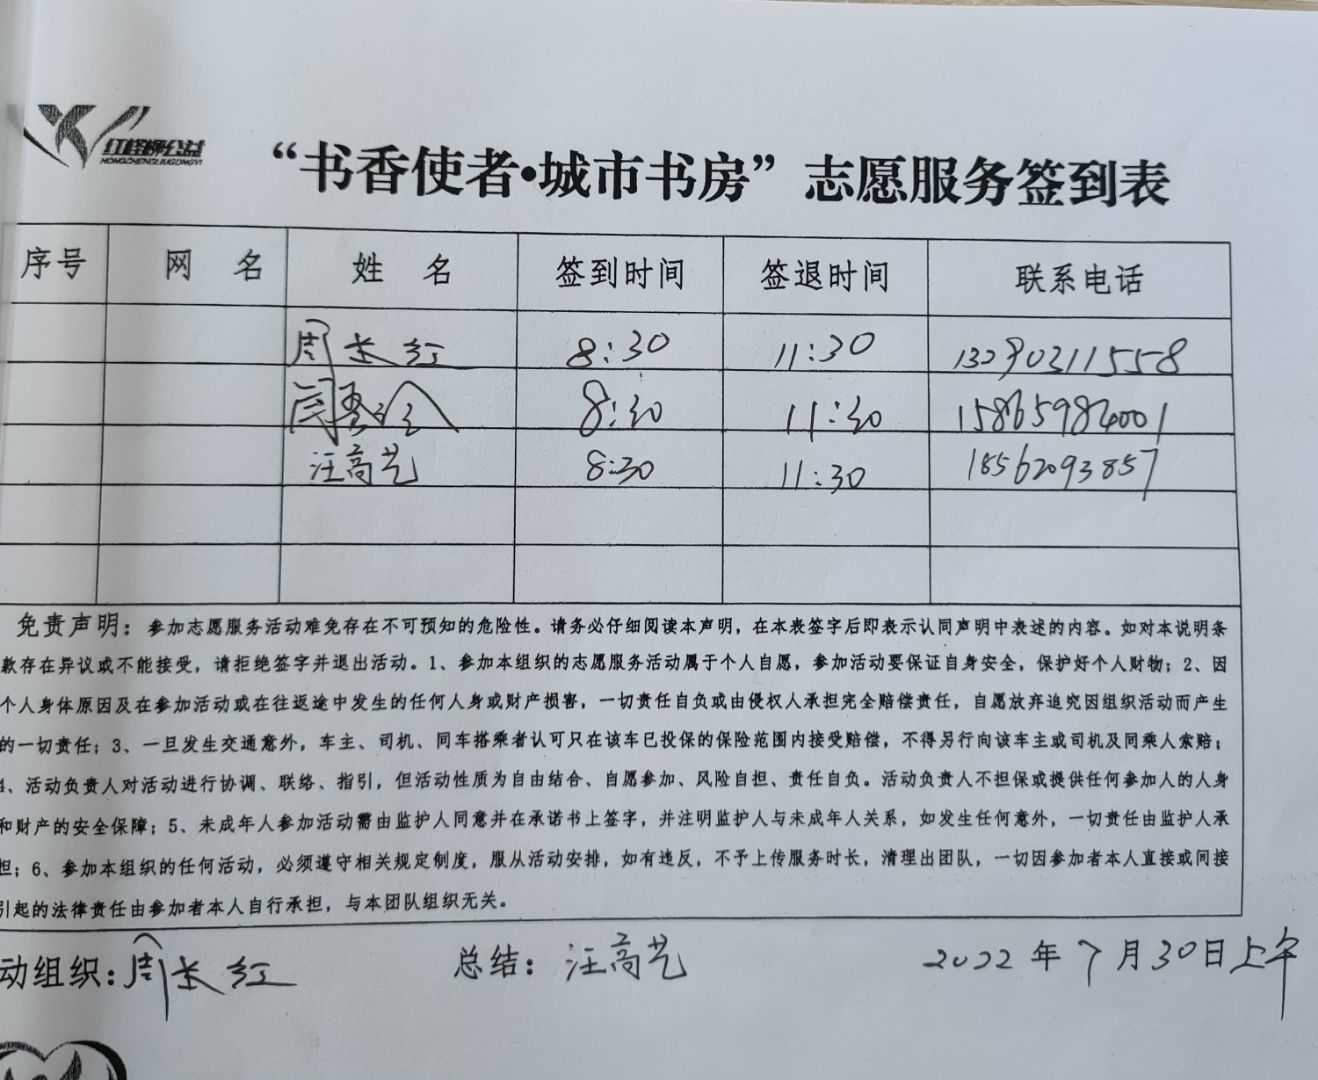 红柽柳公益
HONGCHENGLIUGONGYI
“书香使者•城市书房”志愿服务签到表
序号 网 名 姓 名 签到时间 签退时间 联系电话
周长红 8:30 11:30
8:30 11:30 15865982001
汪高艺 8:30 11:30 18562093857
免责声明：参加志愿服务活动难免存在不可预知的危险性。请务必仔细阅读本声明，在本表签字后即表示认同声明中表述的内容。如对本说明条
款存在异议或不能接受，请拒绝签字并退出活动。1、参加本组织的志愿服务活动属于个人自愿，参加活动要保证自身安全，保护好个人财物；2、因
个人身体原因及在参加活动或在往返途中发生的任何人身或财产损害，一切责任自负或由侵权人承担完全赔偿责任，自愿放弃追究因组织活动而产生
的一切责任；3、一旦发生交通意外，车主、司机、同车搭乘者认可只在该车已投保的保险范围内接受赔偿，不得另行向该车主或司机及同乘人索赔；
4、活动负责人对活动进行协调、联络、指引，但活动性质为自由结合、自愿参加、风险自担、责任自负。活动负责人不担保或提供任何参加人的人身
和财产的安全保障；5、未成年人参加活动需由监护人同意并在承诺书上签字，并注明监护人与未成年人关系，如发生任何意外，一切责任由监护人承
担；6、参加本组织的任何活动，必须遵守相关规定制度，服从活动安排，如有违反，不予上传服务时长，清理出团队，一切因参加者本人直接或间接
引起的法律责任由参加者本人自行承担，与本团队组织无关。
动组织：周长红 总结：汪高艺 2022年7月30日上午